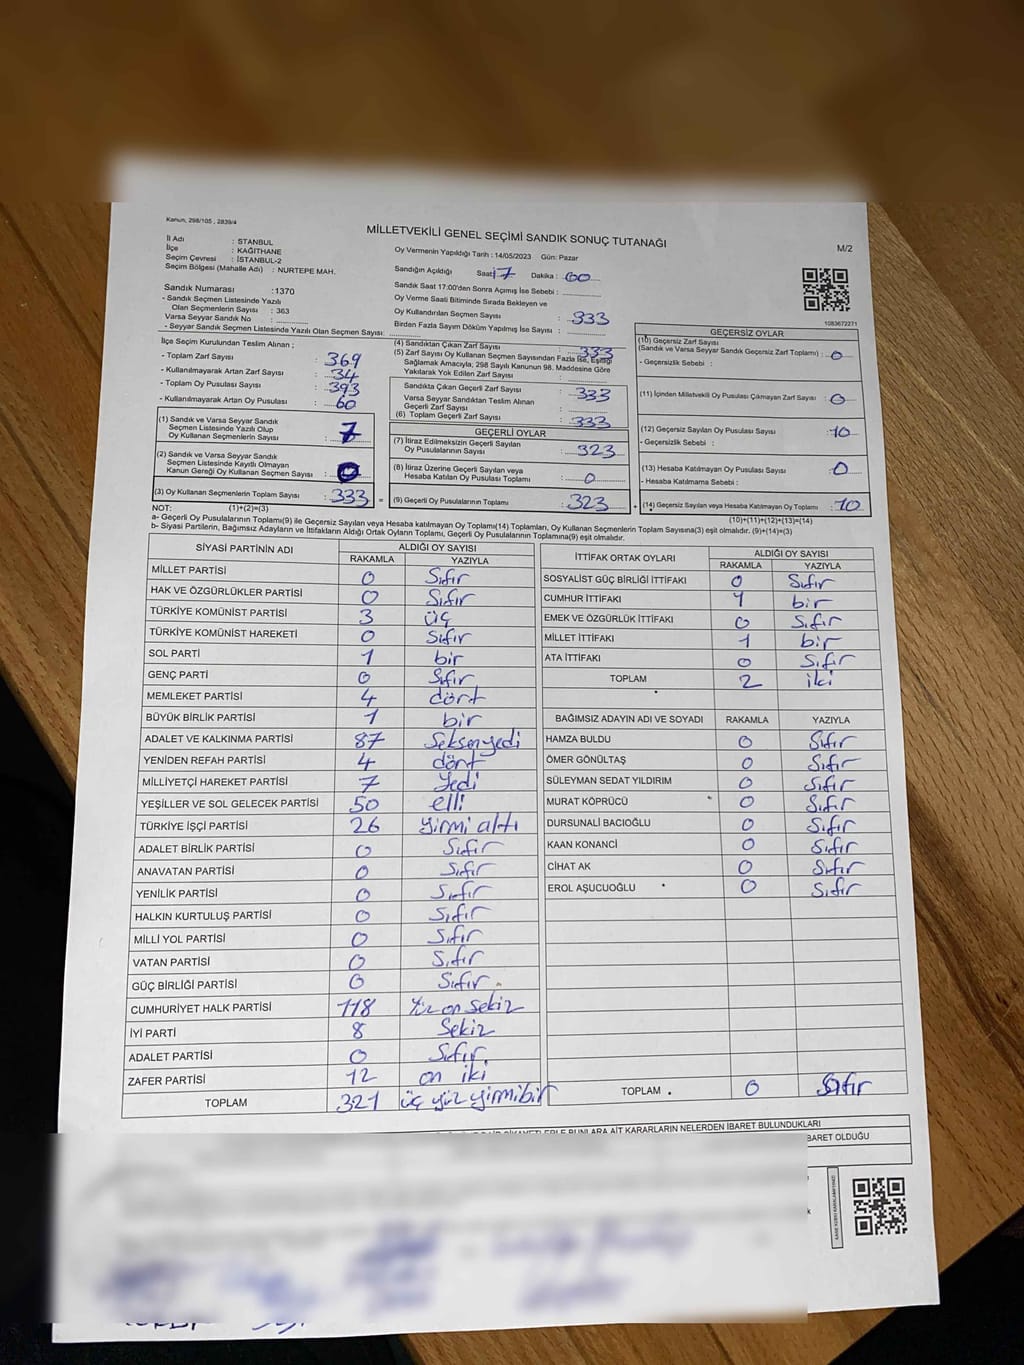 Kanun, 298/105 , 2839/4
MİLLETVEKİLİ GENEL SEÇİMİ SANDIK SONUÇ TUTANAĞI
M/2
İl Adı : STANBUL
İlçe : KAĞITHANE
Seçim Çevresi : İSTANBUL-2
Seçim Bölgesi (Mahalle Adı) : NURTEPE MAH.
Oy Vermenin Yapıldığı Tarih : 14/05/2023 Gün: Pazar
Sandığın Açıldığı Saat 17 Dakika : 00
Sandık Saat 17:00'den Sonra Açımış İse Sebebi :
Oy Verme Saati Bitiminde Sırada Bekleyen ve
Oy Kullandırılan Seçmen Sayısı : 333
Birdan Fazla Sayım Döküm Yapılmış İse Sayısı :
1083672271
Sandık Numarası : 1370
- Sandık Seçmen Listesinde Yazılı
Olan Seçmenlerin Sayısı : 363
Varsa Seyyar Sandık No :
- Seyyar Sandık Seçmen Listesinde Yazılı Olan Seçmen Sayısı:
İlçe Seçim Kurulundan Teslim Alınan ;
- Toplam Zarf Sayısı : 369
- Kullanılmayarak Artan Zarf Sayısı : 34
- Toplam Oy Pusulası Sayısı : 393
- Kullanılmayarak Artan Oy Pusulası : 60
(1) Sandık ve Varsa Seyyar Sandık
Seçmen Listesinde Yazılı Olup
Oy Kullanan Seçmenlerin Sayısı : 7
(2) Sandık ve Varsa Seyyar Sandık
Seçmen Listesinde Kayıtlı Olmayan
Kanun Gereği Oy Kullanan Seçmen Sayısı : 0
(3) Oy Kullanan Seçmenlerin Toplam Sayısı : 333 =
(4) Sandıktan Çıkan Zarf Sayısı : 333
(5) Zarf Sayısı Oy Kullanan Seçmen Sayısından Fazla İse, Eşitliği
Sağlamak Amacıyla, 298 Sayılı Kanunun 98. Maddesine Göre
Yakılarak Yok Edilen Zarf Sayısı :
Sandıkta Çıkan Geçerli Zarf Sayısı : 333
Varsa Seyyar Sandıktan Teslim Alınan
Geçerli Zarf Sayısı :
(6) Toplam Geçerli Zarf Sayısı : 333
GEÇERLİ OYLAR
(7) İtiraz Edilmeksizin Geçerli Sayılan
Oy Pusulalarının Sayısı : 323
(8) İtiraz Üzerine Geçerli Sayılan veya
Hesaba Katılan Oy Pusulası Toplamı : 0
(9) Geçerli Oy Pusulalarının Toplamı : 323 +
GEÇERSİZ OYLAR
(10) Geçersiz Zarf Sayısı
(Sandık ve Varsa Seyyar Sandık Geçersiz Zarf Toplamı) : 0
- Geçersizlik Sebebi :
(11) İçinden Milletvekili Oy Pusulası Çıkmayan Zarf Sayısı : 0
(12) Geçersiz Sayılan Oy Pusulası Sayısı : 10
- Geçersizlik Sebebi :
(13) Hesaba Katılmayan Oy Pusulası Sayısı : 0
- Hesaba Katılmama Sebebi :
(14) Geçersiz Sayılan veya Hesaba Katılmayan Oy Toplamı : 10
NOT: (1)+(2)=(3) (10)+(11)+(12)+(13)=(14)
a- Geçerli Oy Pusulalarının Toplamı(9) ile Geçersiz Sayılan veya Hesaba katılmayan Oy Toplamı(14) Toplamları, Oy Kullanan Seçmenlerin Toplam Sayısına(3) eşit olmalıdır. (9)+(14)=(3)
b- Siyasi Partilerin, Bağımsız Adayların ve İttifakların Aldığı Ortak Oyların Toplamı, Geçerli Oy Pusulalarının Toplamına(9) eşit olmalıdır.
SİYASİ PARTİNİN ADI ALDIĞI OY SAYISI
RAKAMLA YAZIYLA
MİLLET PARTİSİ 0 Sıfır
HAK VE ÖZGÜRLÜKLER PARTİSİ 0 Sıfır
TÜRKİYE KOMÜNİST PARTİSİ 3 üç
TÜRKİYE KOMÜNİST HAREKETİ 0 Sıfır
SOL PARTİ 1 bir
GENÇ PARTİ 0 Sıfır
MEMLEKET PARTİSİ 4 dört
BÜYÜK BİRLİK PARTİSİ 1 bir
ADALET VE KALKINMA PARTİSİ 87 Seksenyedi
YENİDEN REFAH PARTİSİ 4 dört
MİLLİYETÇİ HAREKET PARTİSİ 7 yedi
YEŞİLLER VE SOL GELECEK PARTİSİ 50 elli
TÜRKİYE İŞÇİ PARTİSİ 26 yirmi altı
ADALET BİRLİK PARTİSİ 0 Sıfır
ANAVATAN PARTİSİ 0 Sıfır
YENİLİK PARTİSİ 0 Sıfır
HALKIN KURTULUŞ PARTİSİ 0 Sıfır
MİLLİ YOL PARTİSİ 0 Sıfır
VATAN PARTİSİ 0 Sıfır
GÜÇ BİRLİĞİ PARTİSİ 0 Sıfır
CUMHURİYET HALK PARTİSİ 118 Yüz on sekiz
İYİ PARTİ 8 Sekiz
ADALET PARTİSİ 0 Sıfır
ZAFER PARTİSİ 12 on iki
TOPLAM 321 üç yüz yirmibir
İTTİFAK ORTAK OYLARI ALDIĞI OY SAYISI
RAKAMLA YAZIYLA
SOSYALİST GÜÇ BİRLİĞİ İTTİFAKI 0 Sıfır
CUMHUR İTTİFAKI 1 bir
EMEK VE ÖZGÜRLÜK İTTİFAKI 0 Sıfır
MİLLET İTTİFAKI 1 bir
ATA İTTİFAKI 0 Sıfır
TOPLAM 2 iki
BAĞIMSIZ ADAYIN ADI VE SOYADI RAKAMLA YAZIYLA
HAMZA BULDU 0 Sıfır
ÖMER GÖNÜLTAŞ 0 Sıfır
SÜLEYMAN SEDAT YILDIRIM 0 Sıfır
MURAT KÖPRÜCÜ 0 Sıfır
DURSUNALİ BACIOĞLU 0 Sıfır
KAAN KONANCİ 0 Sıfır
CİHAT AK 0 Sıfır
EROL AŞUCUOĞLU 0 Sıfır
TOPLAM 0 Sıfır
BUNLARA AİT KARARLARIN NELERDEN İBARET BULUNDUKLARI
BARET OLDUĞU